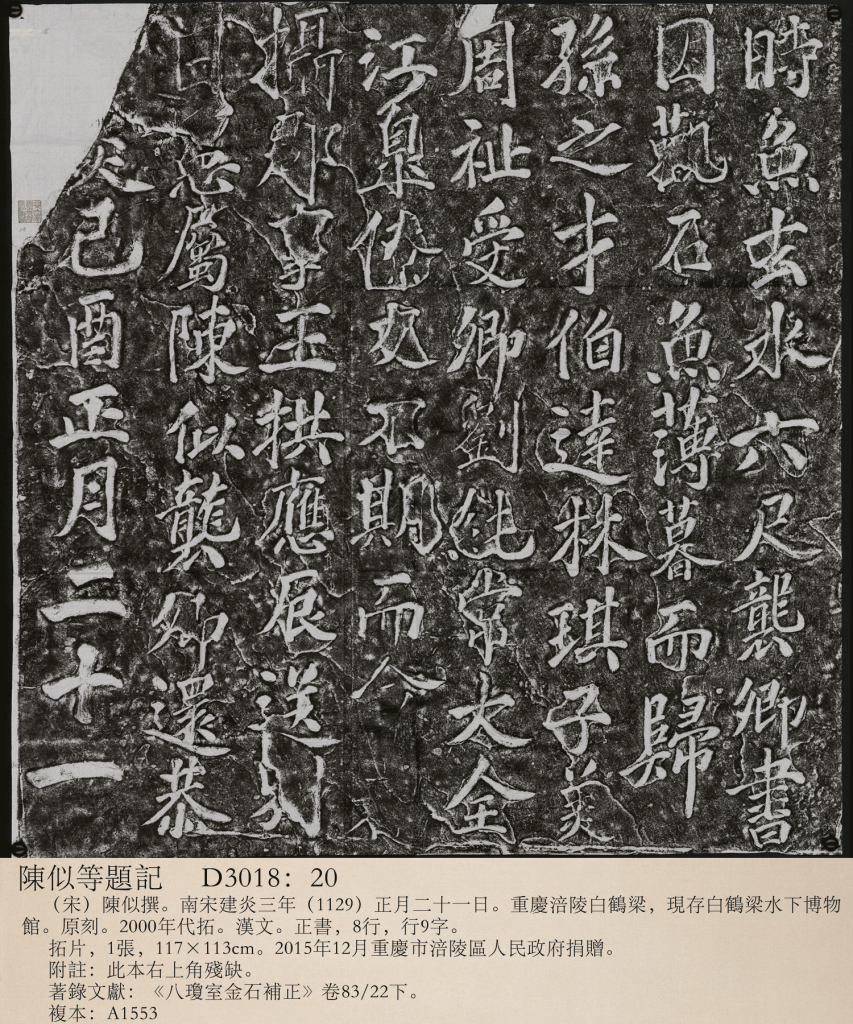 炎己酉正月二十一
日憲屬陳似襲卿還恭
攝郡事王拱應辰送別
江皋僚友不期而
周祉受卿劉純常大全
孫之才伯達林琪子美
因觀石魚薄暮而歸
時魚去水六尺襲卿書
陳似等題記　D3018：20
（宋）陳似撰。南宋建炎三年（1129）正月二十一日。重慶涪陵白鶴梁，現存白鶴梁水下博物
館。原刻。2000年代拓。漢文。正書，8行，行9字。
拓片，1張，117×113cm。2015年12月重慶市涪陵區人民政府捐贈。
附註：此本右上角殘缺。
著錄文獻：《八瓊室金石補正》卷83/22下。
複本：A1553